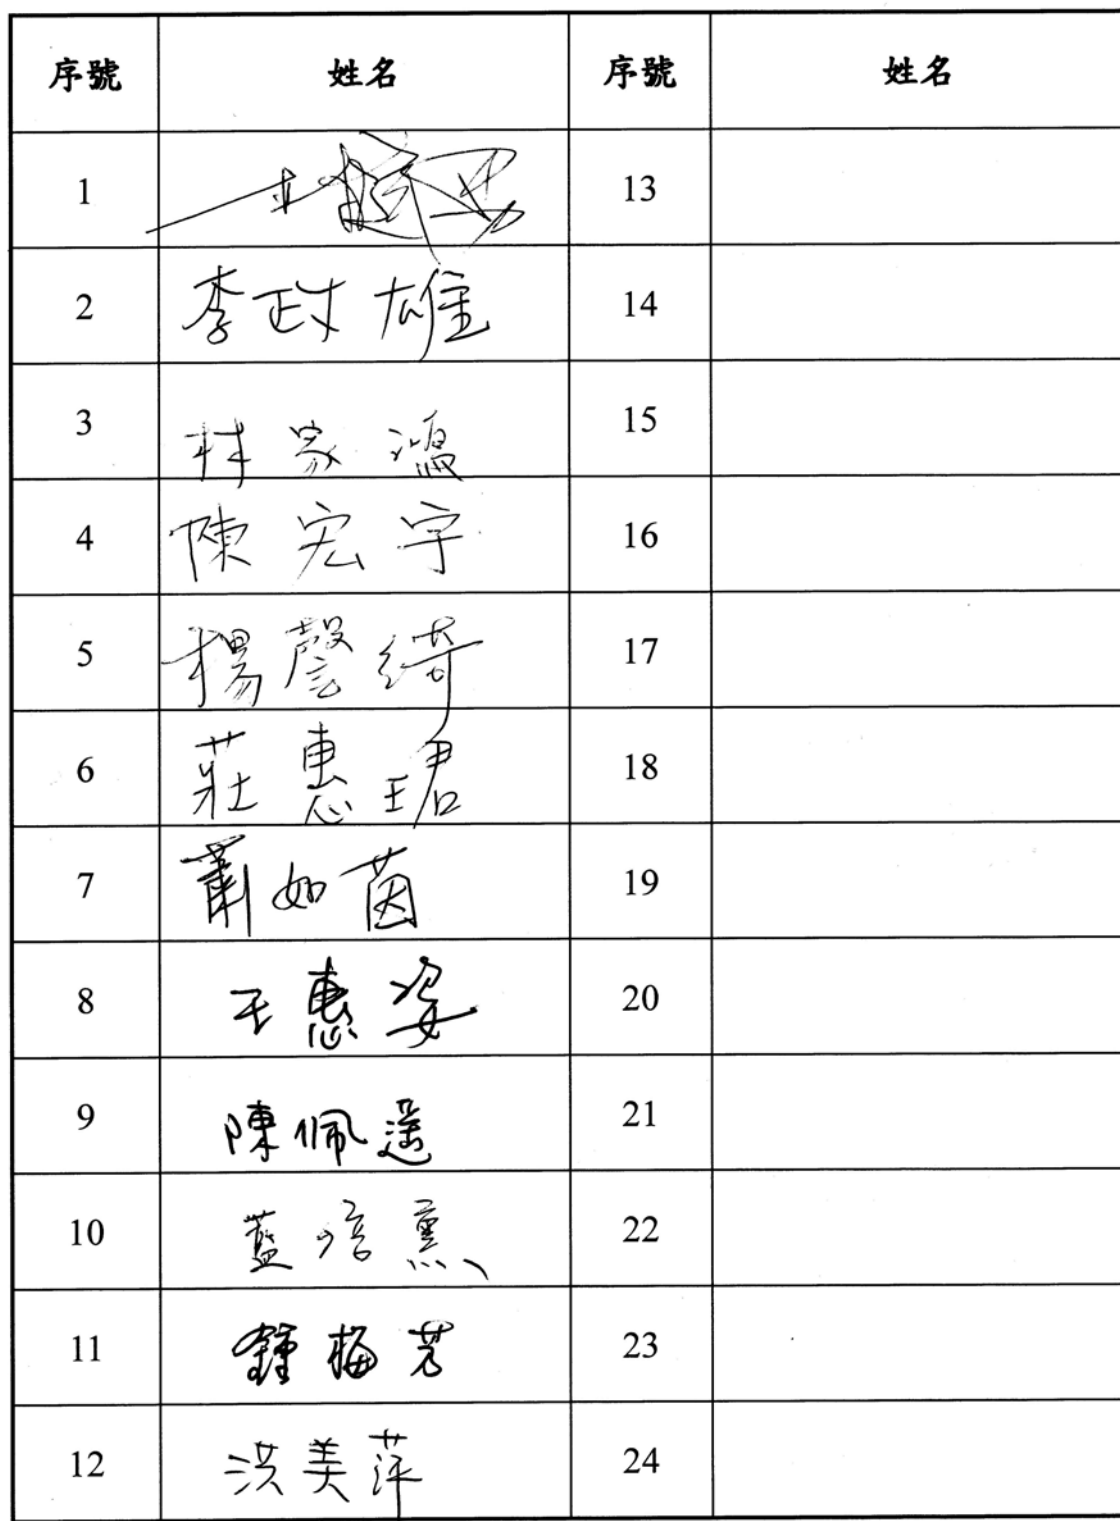 序號 姓名 序號 姓名
1 13
2 李政雄 14
3 林家鴻 15
4 陳宏宇 16
5 楊謦綺 17
6 莊惠珺 18
7 蕭如茵 19
8 王惠姿 20
9 陳佩遥 21
10 藍 薰 22
11 鍾梅芳 23
12 洪美萍 24